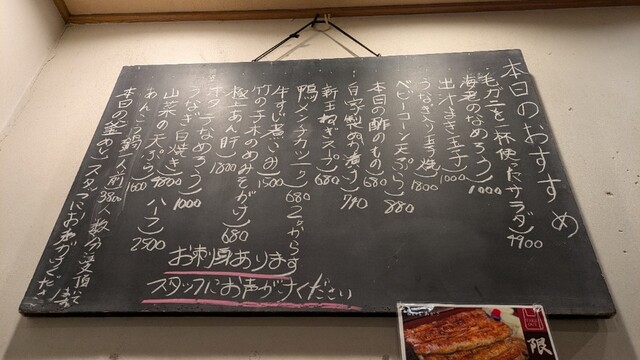 本日のおすすめ
毛ガニを一杯使ったサラダ) 4900
海老のなめろう) 1000
出汁まき玉子) 1000
うなぎ入り玉子焼) 1800
ベビーコーン天ぷら) 880
本日の酢のもの) 680
自家製ぬか漬け) 780
新玉ねぎスープ) 680
鴨メンチカツ一ヶ) 680 2ヶから
牛すじ煮こみ) 1500
竹の子木のめみそがけ) 680
極上あん肝) 1800
ホタテなめろう)
うなぎ白焼き) 1000
山菜の天ぷら) 4800 ハーフ) 2500
あんこう鍋) 一人前 3800 人数分注文頂いて
本日の釜めし) スタッフにお声がけください
お刺身あります
スタッフにお声がけください
限